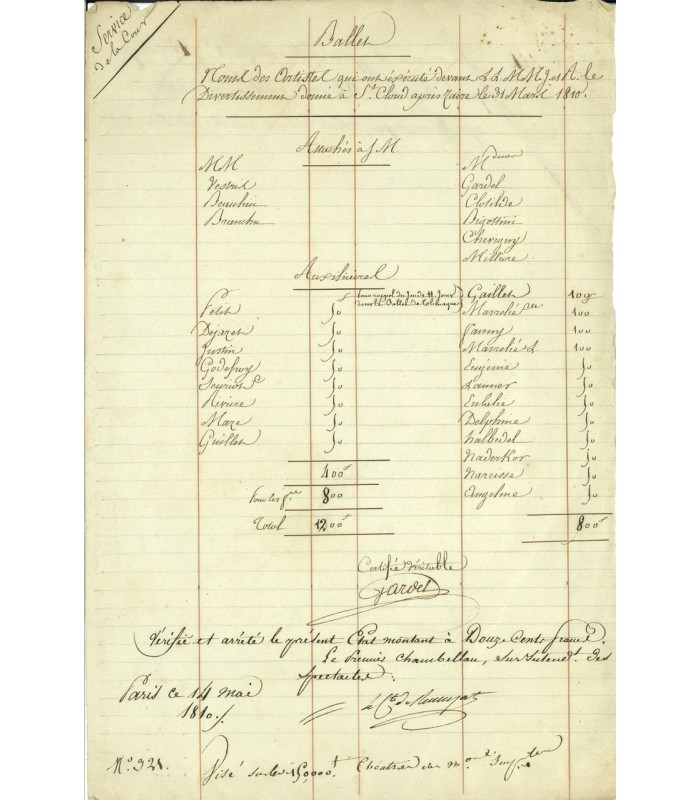 Service
de la Cour
Ballet
Noms des Artistes qui ont exécuté devant L L M M J. et R. le
Divertissement donné à St. Cloud après Zaïre le 31 Mars 1810.
Attachés à S M
MM
Vestris
Beaulieu
Branchu
Mesdames
Gardel
Clotilde
Bigottini
Chevigny
Millière
Auxiliaires
Petit 50
Dejazet 50
Justin 50
Godefroy 50
50
Rivière 50
Maze 50
Guillet 50
400
800
Total 1200
pour rappel du Jeudi 11. Janv.
dans le Ballet de Télémaque
Gaillet 100
Marrelié 100
Fanny 100
Marrelié 2. 100
Eugénie 50
Launer 50
Eulalie 50
Delphine 50
halbedel 50
Naderkor 50
Narcisse 50
Angelme 50
800
Certifié Véritable
Gardel
Vérifié et arrêté le présent Etat montant à Douze Cents francs.
Le Premier Chambellan, Surintendt. des
Spectacles
Paris ce 14 mai
1810.
Le Cte de Remusat
No. 321.
Visé sur les